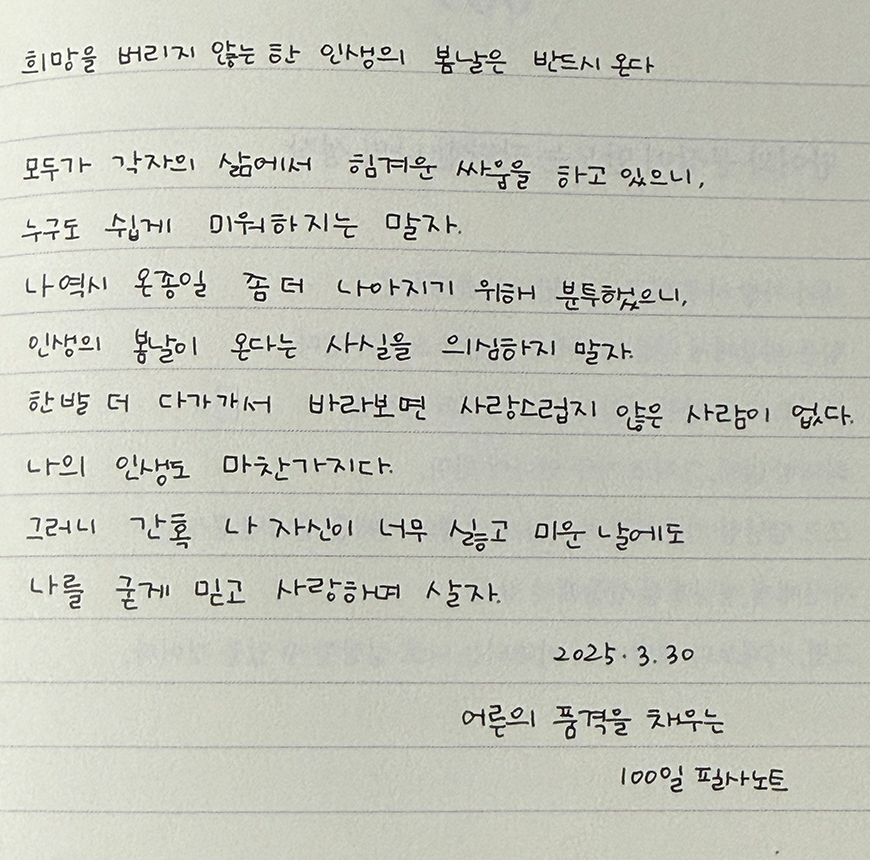 희망을 버리지 않는 한 인생의 봄날은 반드시 온다
모두가 각자의 삶에서 힘겨운 싸움을 하고 있으니,
누구도 쉽게 미워하지는 말자.
나 역시 온종일 좀 더 나아지기 위해 분투했으니,
인생의 봄날이 온다는 사실을 의심하지 말자.
한발 더 다가가서 바라보면 사랑스럽지 않은 사람이 없다.
나의 인생도 마찬가지다.
그러니 간혹 나 자신이 너무 싫고 미운 날에도
나를 굳게 믿고 사랑하며 살자.
2025. 3. 30
어른의 품격을 채우는
100일 필사노트